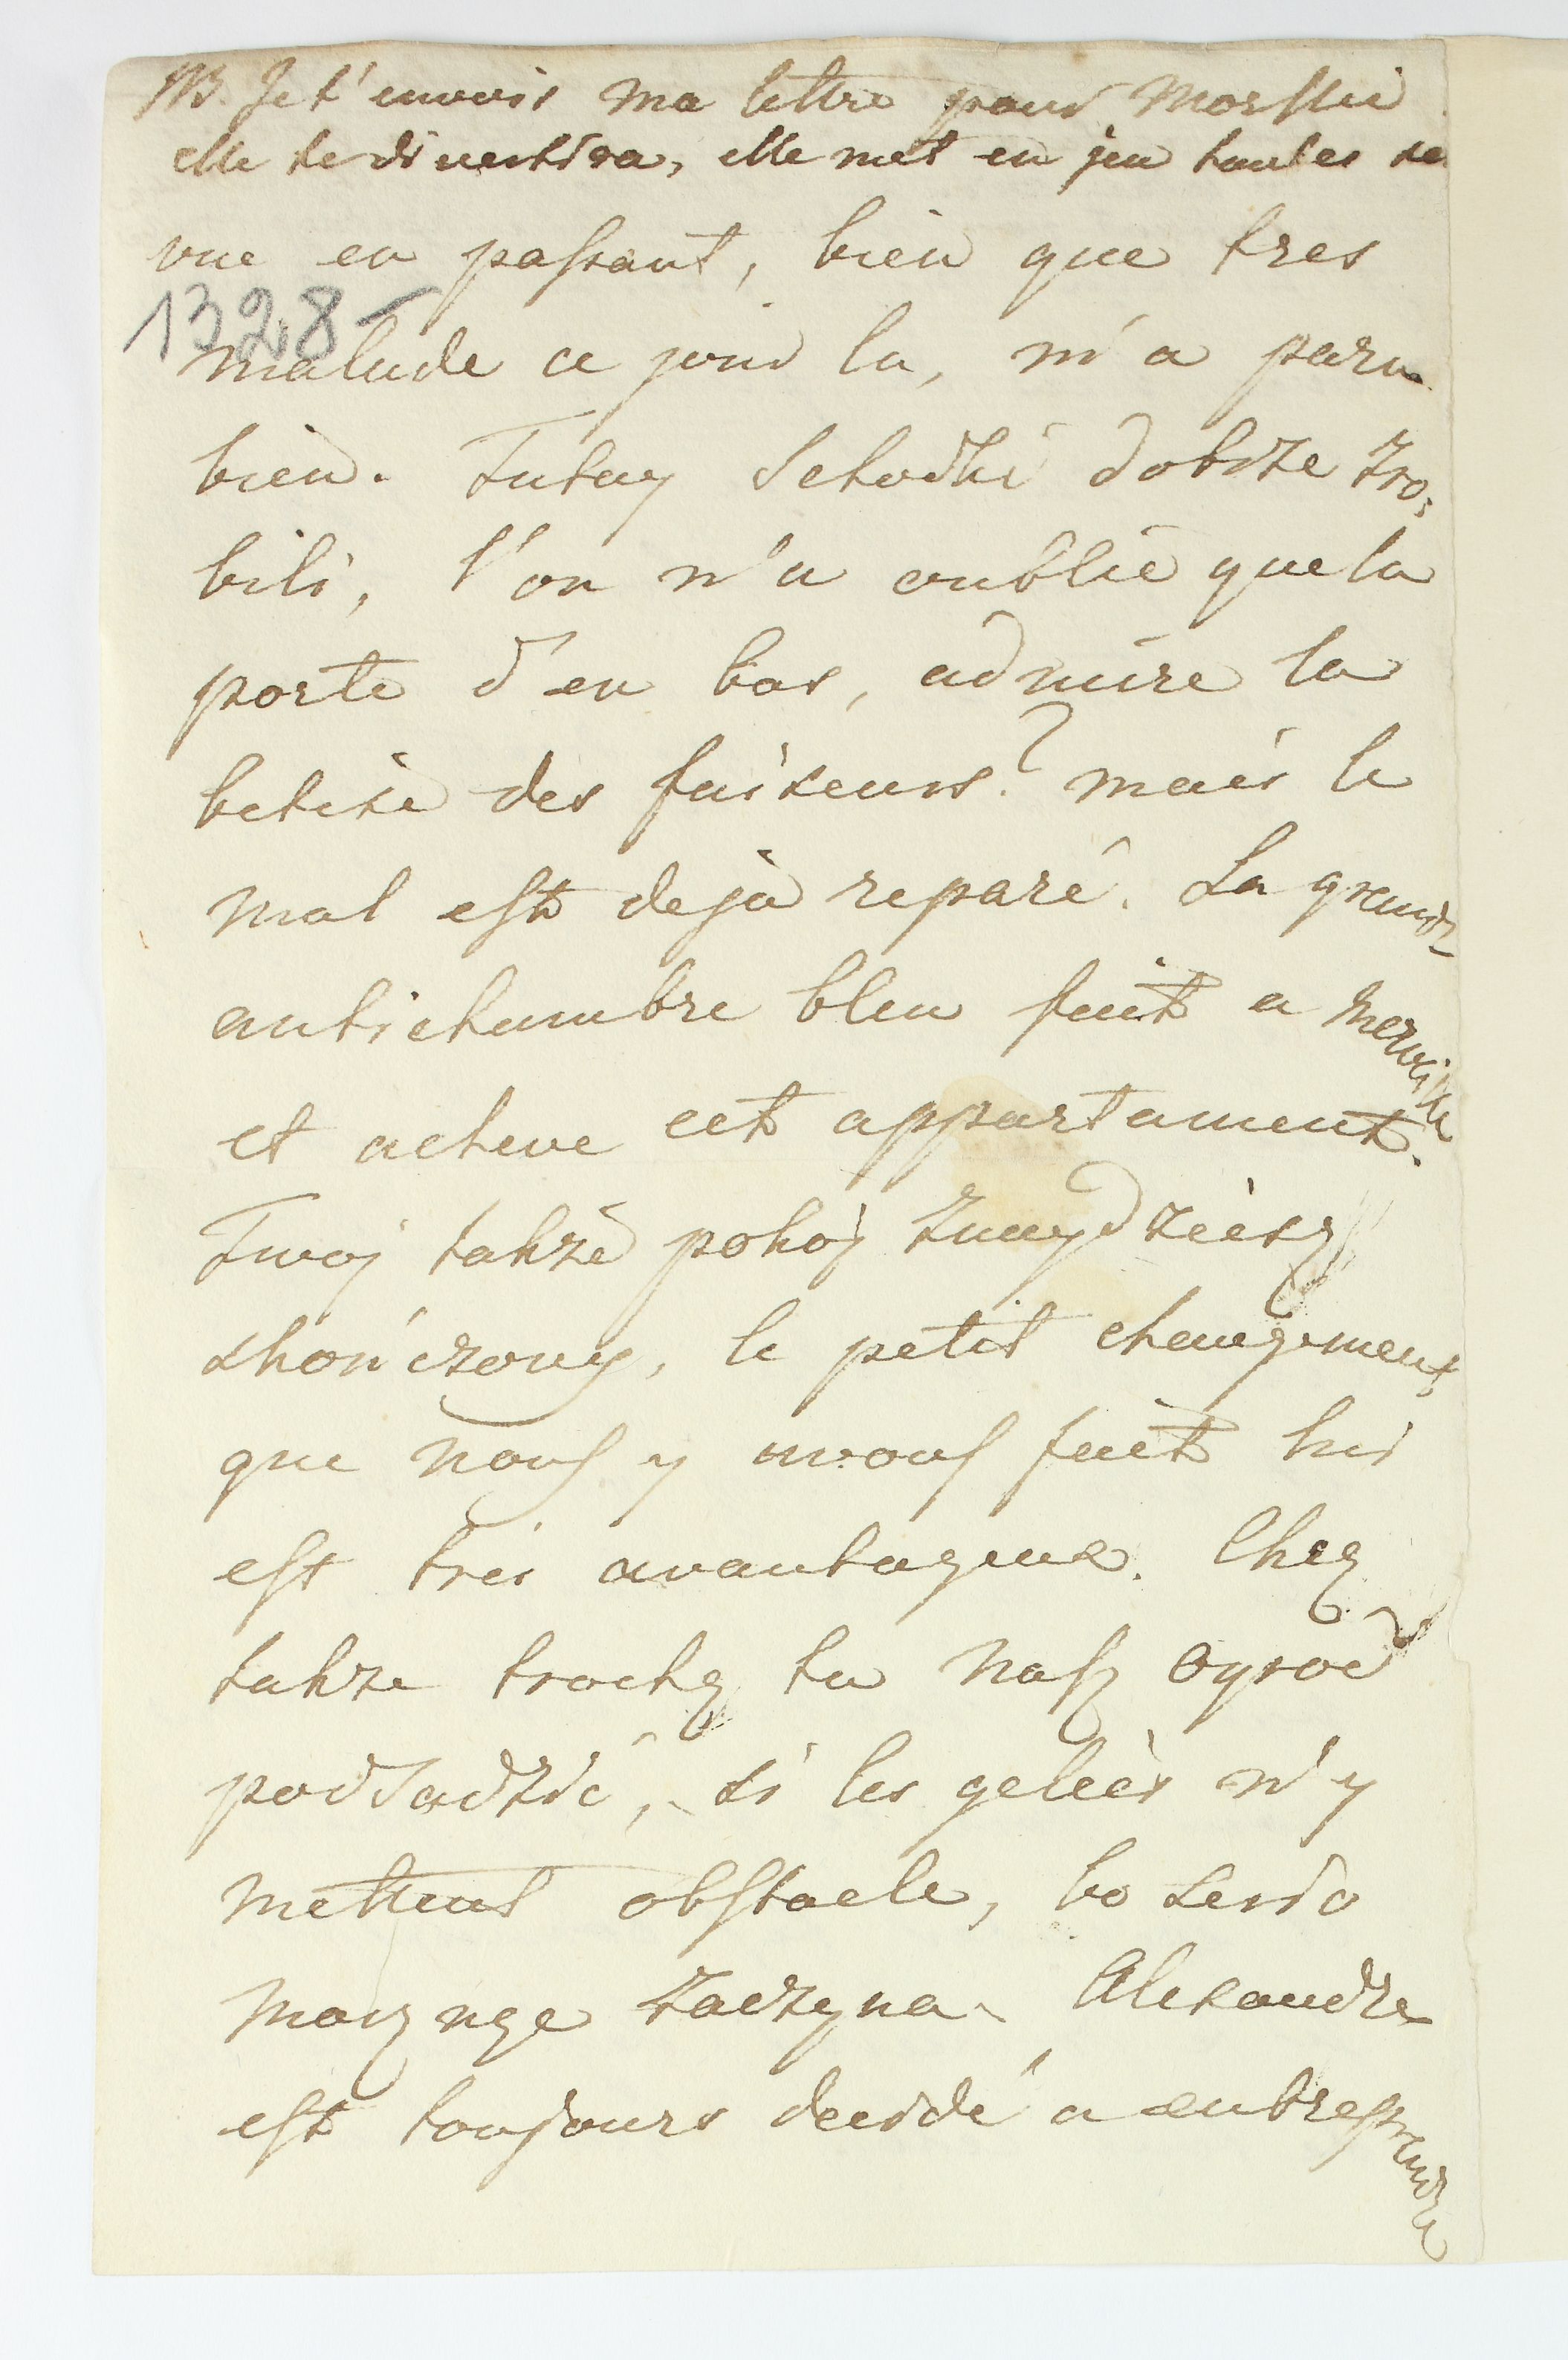 NB. Je t'envois ma lettre pour Morski
elle te divertira, elle met en jeu toutes se
vue en passant, bien que tres
1328
malade ce jour la, m'a paru
bien. Tutay Schodki dobrze zro:
bili, l'on n'a oublié que la
porte d'en bas, admire la
betise des faiseurs? mais le
mal est dejà reparé. La grande
antichambre bleu fait a merveille
et acheve cet appartament.
Twoj takze pokoj znaydziesz
skończony, le petit changement
que nous y avons fait
est tres avantageux. Chcę
takze trochę tu nasz ogrod
podsadzić, si les gelées n'y
mettent obstacle, bo
zaczyna. Alexandre
est toujours decidé a entreprendre